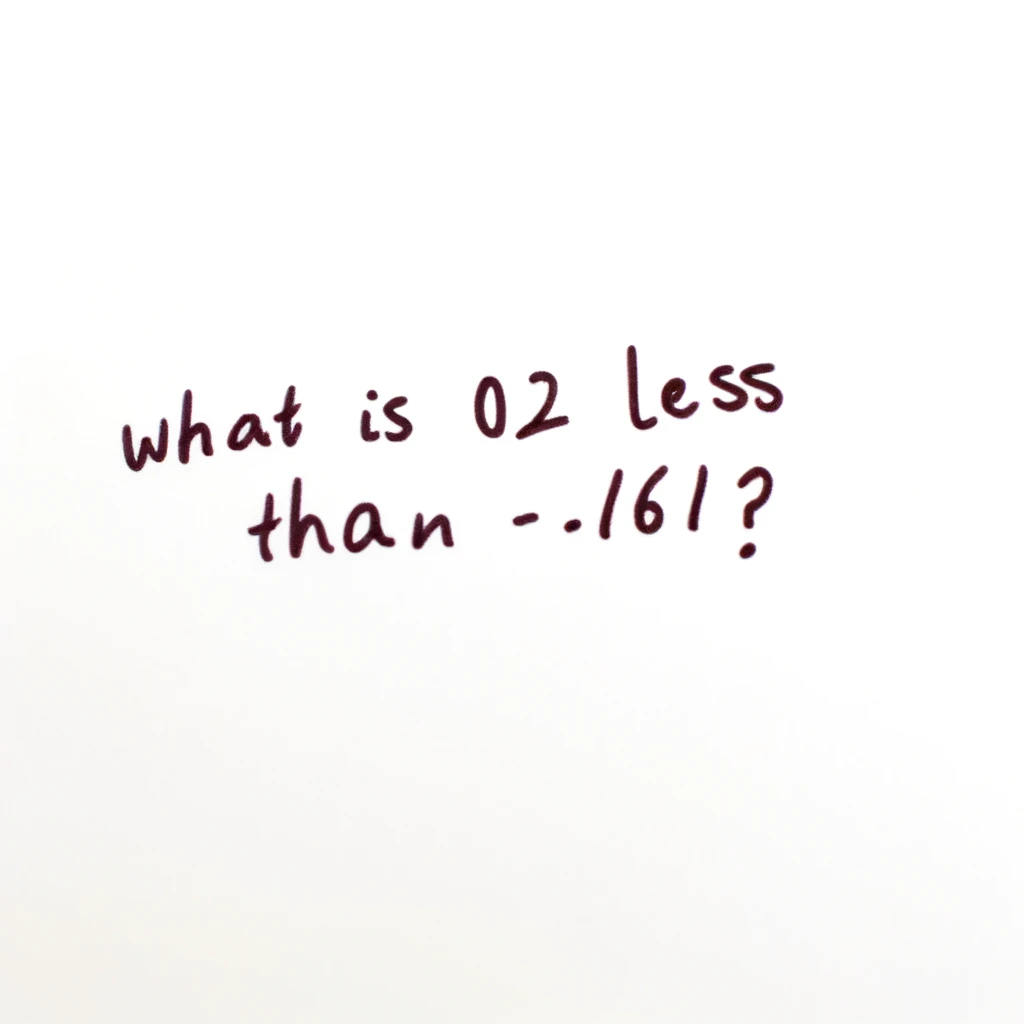 what is 02 less
than -.161?